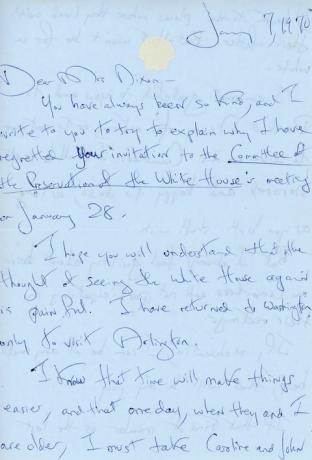 January 7, 1970
Dear Mrs Nixon -
You have always been so kind, and I
write to you to try to explain why I have
regretted your invitation to the Committee of
the Preservation of the White House's meeting
on January 28.
I hope you will understand that the
thought of seeing the White House again
is painful. I have returned to Washington
only to visit Arlington.
I know that time will make things
easier, and that one day, when they and I
are older, I must take Caroline and John